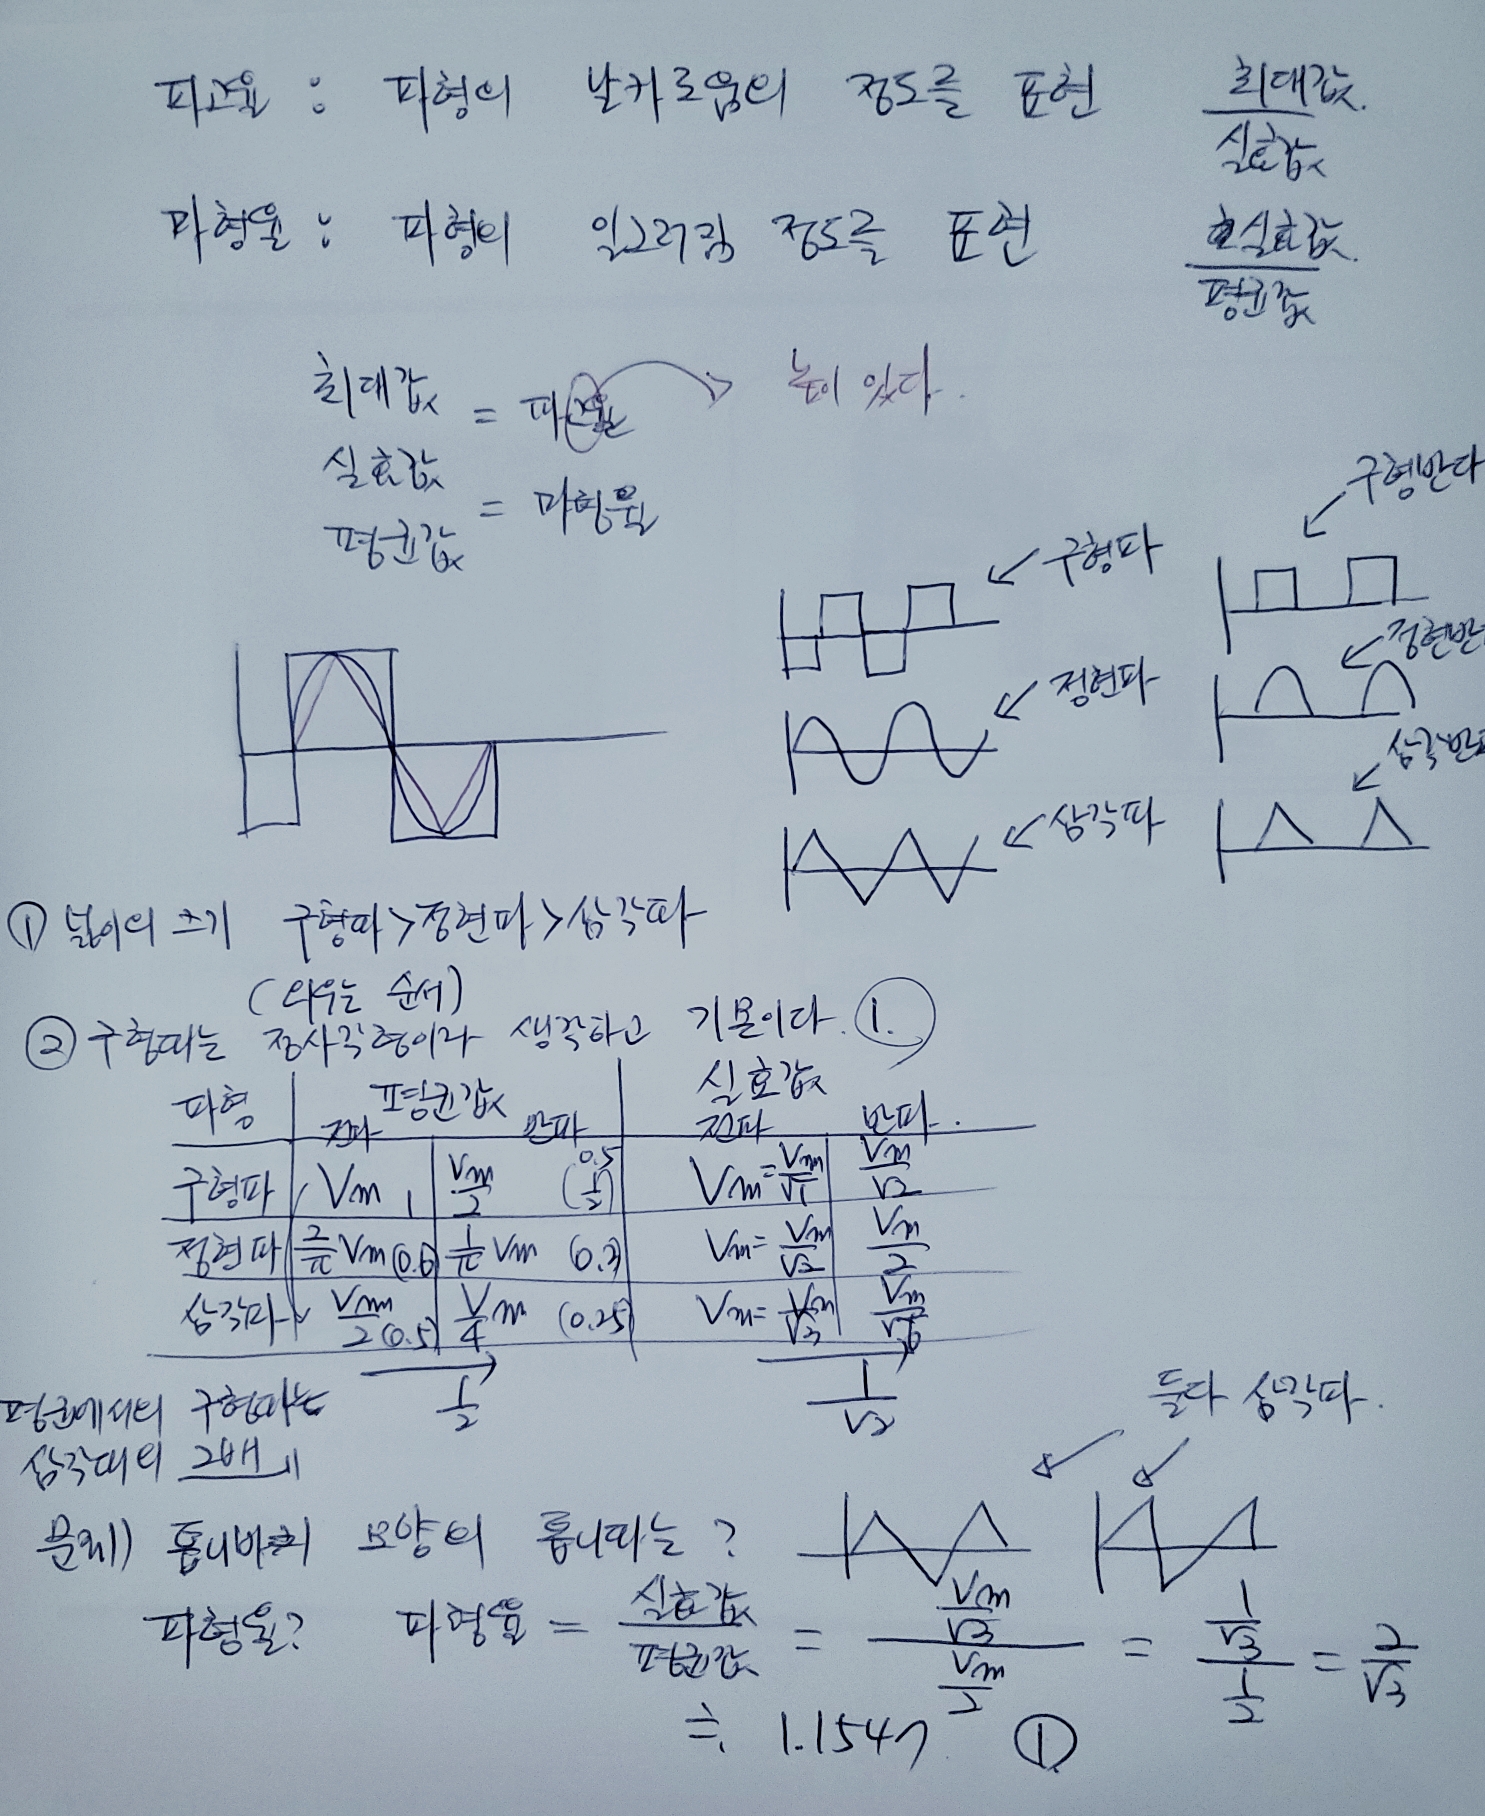 파고율 : 파형의 날카로움의 정도를 표현 최대값/실효값
파형율 : 파형의 일그러짐 정도를 표현 실효값/평균값
최대값
= 파고율 → 높이 있다.
실효값
= 파형율
평균값
구형파 구형반파
정현파 정현반
삼각파 삼각반파
① 넓이의 크기 구형파>정현파>삼각파
(외우는 순서)
② 구형파는 정사각형이라 생각하고 기본이다. ①.
파형 평균값 실효값
전파 반파 전파 반파.
구형파 Vm 1 Vm/2 (1/2) 0.5 Vm=Vm/√1 Vm/√2
정현파 2/π Vm (0.6) 1/π Vm (0.3) Vm=Vm/√2 Vm/2
삼각파 Vm/2 (0.5) V/4 m (0.25) Vm=Vm/√3 Vm/√6
→ 1/2 → 1/√2
평균에서의 구형파는
삼각파의 2배
둘다 삼각파.
문제) 톱니바퀴 모양의 톱니파는?
파형율? 파형율 = 실효값/평균값 = (Vm/√3)/(Vm/2) = (1/√3)/(1/2) = 2/√3
≒ 1.1547 ①